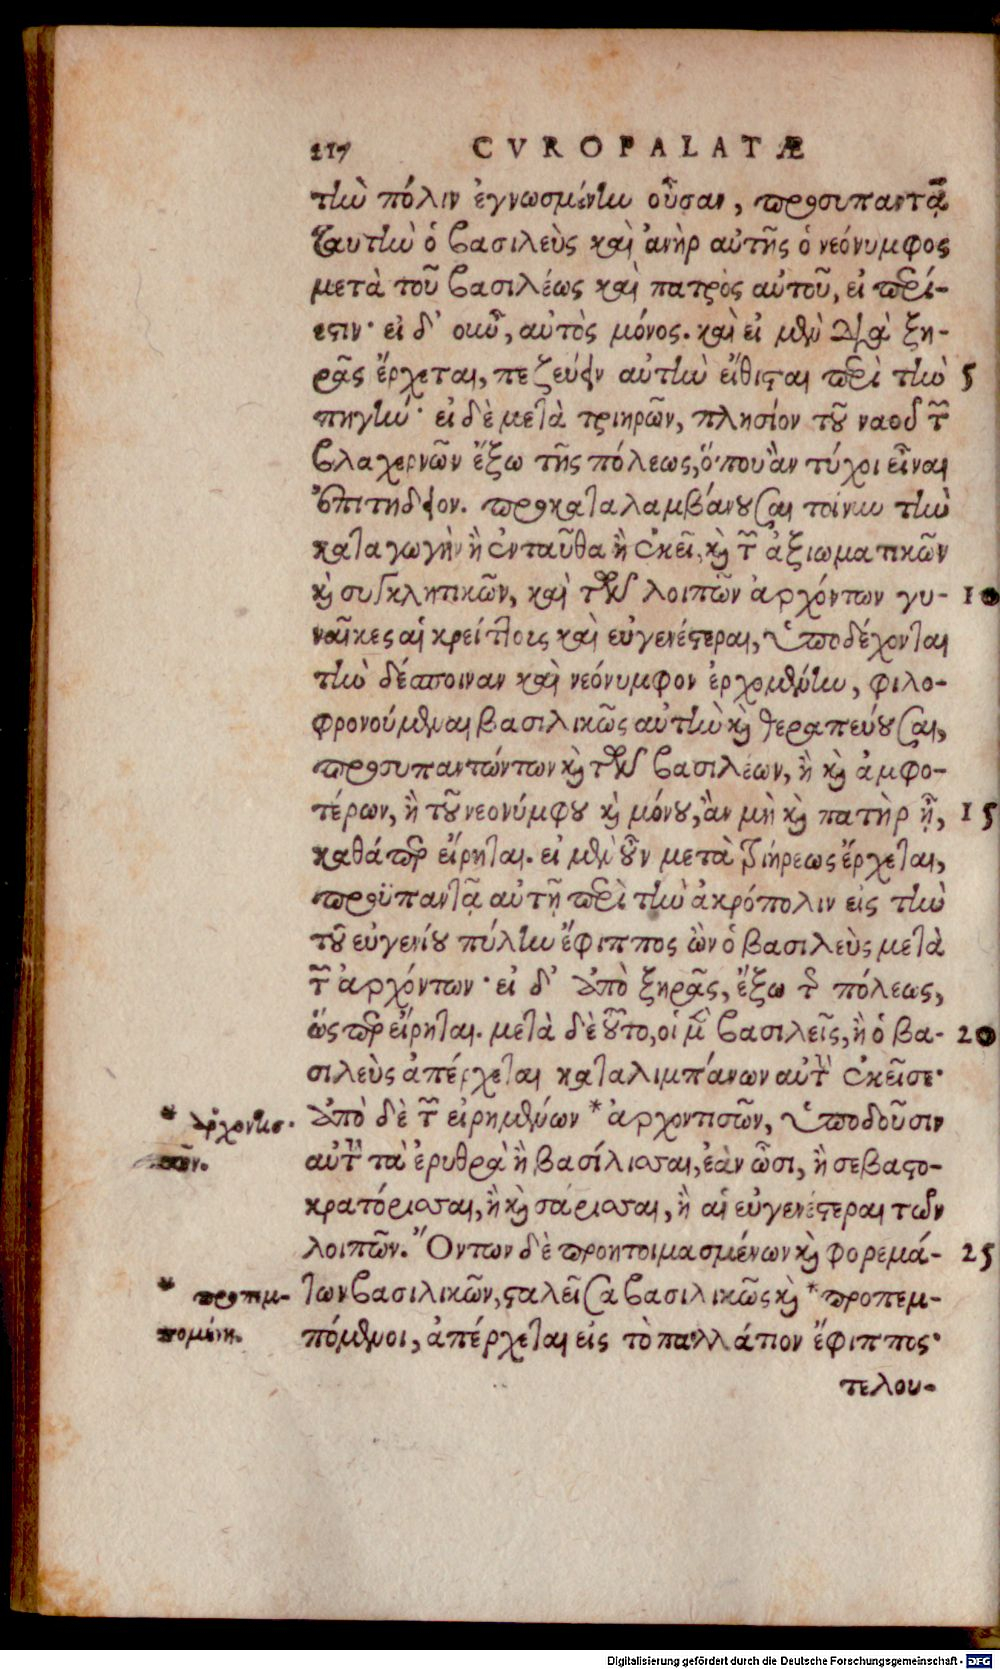 217 CVROPALATÆ
τὴν πόλιν ἐγνωσμένην οὖσαν, προσυπαντᾷ
ταύτην ὁ βασιλεὺς καὶ ἀνὴρ αὐτῆς ὁ νεόνυμφος
μετὰ τοῦ βασιλέως καὶ πατρὸς αὐτοῦ, εἰ περί-
εστιν· εἰ δ' οὖν, αὐτὸς μόνος. καὶ εἰ μὲν διὰ ξη-
ρᾶς ἔρχεται, πεζεύειν αὐτὴν εἴθισται περὶ τὴν 5
πηγήν· εἰ δὲ μετὰ τριηρῶν, πλησίον τοῦ ναοῦ τῶν
βλαχερνῶν ἔξω τῆς πόλεως, ὅπου ἂν τύχοι εἶναι
ἐπιτηδειον. προκαταλαμβάνουσαι τοίνυν τὴν
καταγωγὴν ἢ ἐνταῦθα ἢ ἐκεῖ, καὶ τῶν ἀξιωματικῶν
καὶ συγκλητικῶν, καὶ τῶν λοιπῶν ἀρχόντων γυ- 10
ναῖκες αἱ κρείττους καὶ εὐγενέστεραι, ὑποδέχονται
τὴν δέσποιναν καὶ νεόνυμφον ἐρχομένην, φιλο-
φρονούμεναι βασιλικῶς αὐτὴν καὶ θεραπεύουσαι,
προσυπαντώντων καὶ τῶν βασιλέων, ἢ καὶ ἀμφο-
τέρων, ἢ τοῦ νεονύμφου καὶ μόνου, ἂν μὴ καὶ πατὴρ ᾖ, 15
καθάπερ εἴρηται. εἰ μὲν οὖν μετὰ τριήρεως ἔρχεται,
προϋπαντᾷ αὐτῇ περὶ τὴν ἀκρόπολιν εἰς τὴν
τοῦ εὐγενίου πύλην ἔφιππος ὢν ὁ βασιλεὺς μετὰ
τῶν ἀρχόντων· εἰ δ' ἀπὸ ξηρᾶς, ἔξω τῆς πόλεως,
ὥσπερ εἴρηται. μετὰ δὲ τοῦτο, οἱ μὲν βασιλεῖς, ἢ ὁ βα- 20
σιλεὺς ἀπέρχεται καταλιμπάνων αὐτὴν ἐκεῖσε·
ἀπὸ δὲ τῶν εἰρημένων * ἀρχοντισῶν, ὑποδοῦσιν
αὐτὴν τὰ ἐρυθρὰ ἢ βασίλισσαι, ἐὰν ὦσι, ἢ σεβαστο-
κρατόρισσαι, ἢ καὶ σάρισσαι, ἢ αἱ εὐγενέστεραι τῶν
λοιπῶν. Ὄντων δὲ προητοιμασμένων καὶ φορεμά- 25
των βασιλικῶν, σταλεῖσα βασιλικῶς καὶ * προπεμ-
πόμενοι, ἀπέρχεται εἰς τὸ παλλάτιον ἔφιππος·
τελου-
* ἀρχοντισ-
σῶν.
* προπεμ-
πομένη.
Digitalisierung gefördert durch die Deutsche Forschungsgemeinschaft - DFG